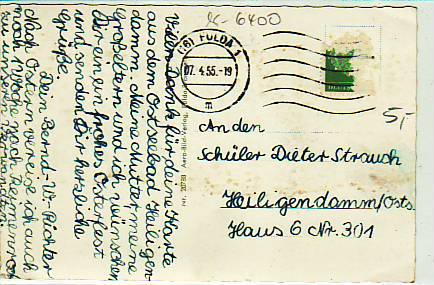 K-6400
(16) FULDA 1
07. 4. 55.-19
m
5,-
Vielen Dank für deine Karte
aus dem Ostseebad Heiligen-
damm. Meine Mutter, meine
Großeltern und ich wünschen
Dir ein frohes Osterfest
und senden Dir herzliche
Grüße
Dein Bernd-W. Richter
Nach Ostern verreise ich auch
nach
zu unseren
Nr.
Aero-Bild-Verlag, Fulda
An den
Schüler Dieter Strauch
Heiligendamm/Osts.
Haus 6 Nr. 301